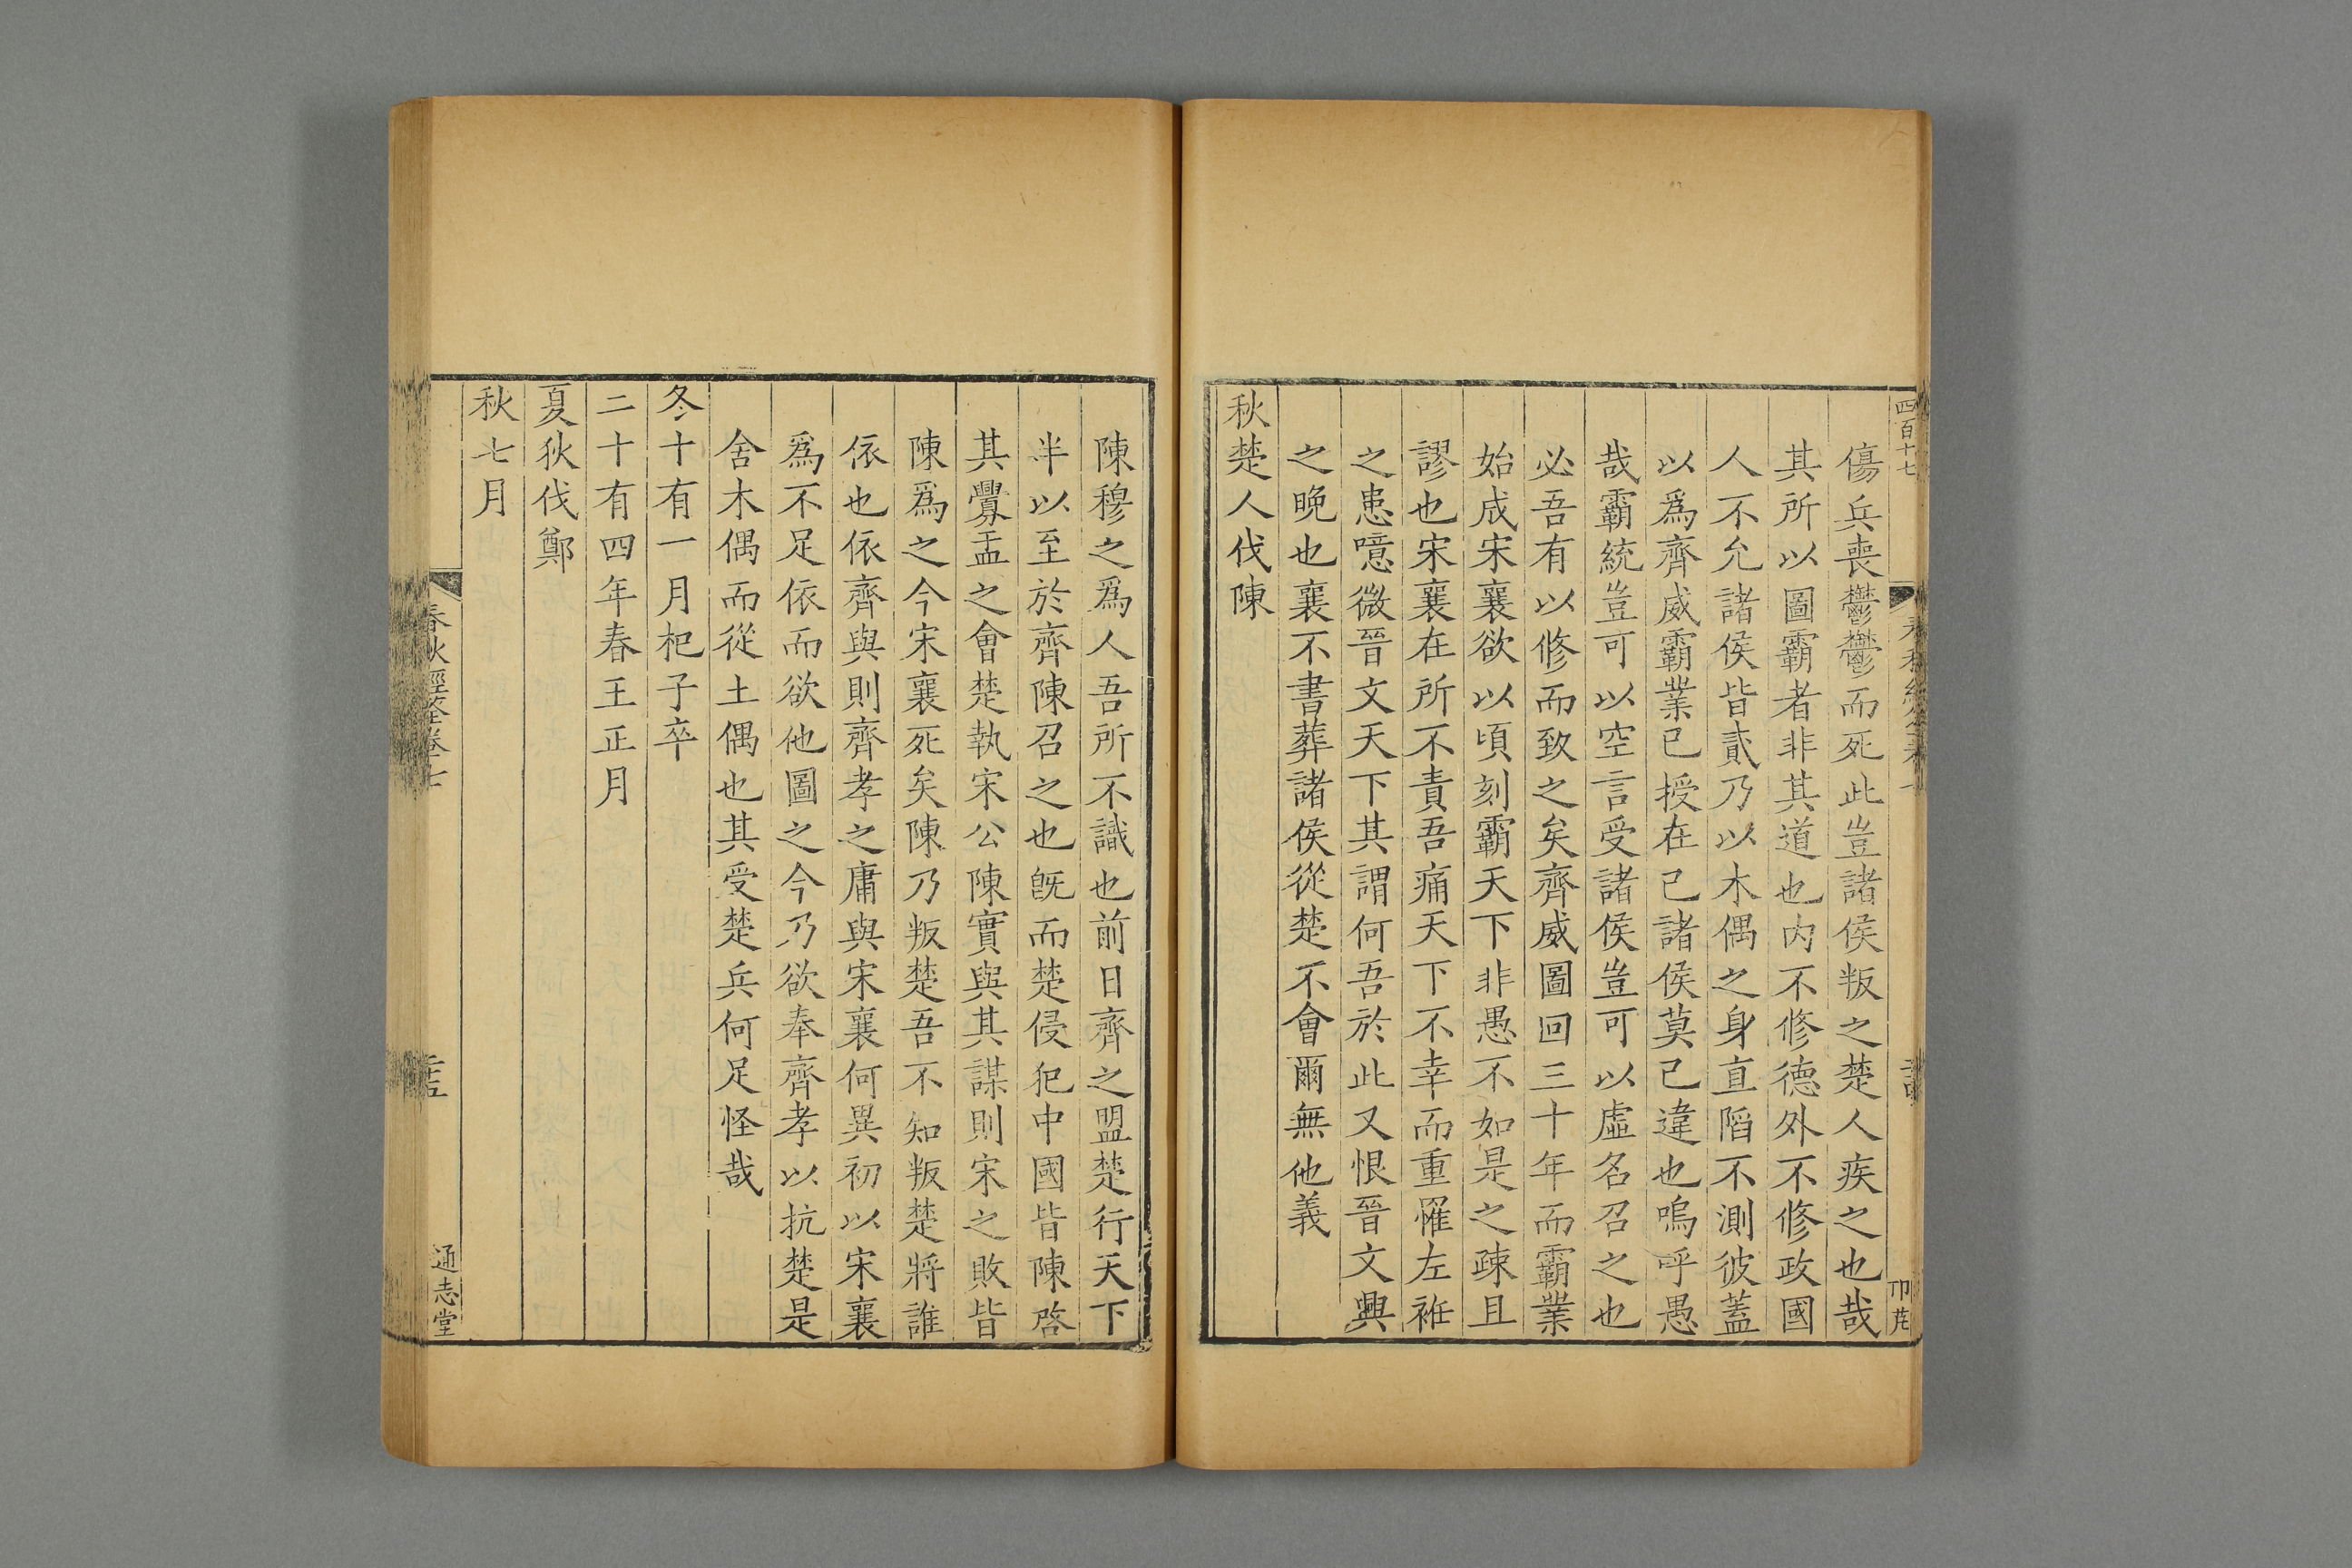 四百十七
傷兵喪鬱鬱而死此豈諸侯叛之楚人疾之也哉
其所以圖霸者非其道也内不修德外不修政國
人不允諸侯皆貳乃以木偶之身直陷不測彼蓋
以爲齊威霸業已授在己諸侯莫己違也嗚呼愚
哉霸統豈可以空言受諸侯豈可以虛名召之也
必吾有以修而致之矣齊威圖回三十年而霸業
始成宋襄欲以頃刻霸天下非愚不如是之疎且
謬也宋襄在所不責吾痛天下不幸而重罹左袵
之患噫微晉文天下其謂何吾於此又恨晉文興
之晚也襄不書葬諸侯從楚不會爾無他義
秋楚人伐陳
陳穆之爲人吾所不識也前日齊之盟楚行天下
半以至於齊陳召之也旣而楚侵犯中國皆陳啓
其釁盂之會楚執宋公陳實與其謀則宋之敗皆
陳爲之今宋襄死矣陳乃叛楚吾不知叛楚將誰
依也依齊與則齊孝之庸與宋襄何異初以宋襄
爲不足依而欲他圖之今乃欲奉齊孝以抗楚是
舍木偶而從土偶也其受楚兵何足怪哉
冬十有一月杞子卒
二十有四年春王正月
夏狄伐鄭
秋七月
春秋經筌卷七
二十五
通志堂